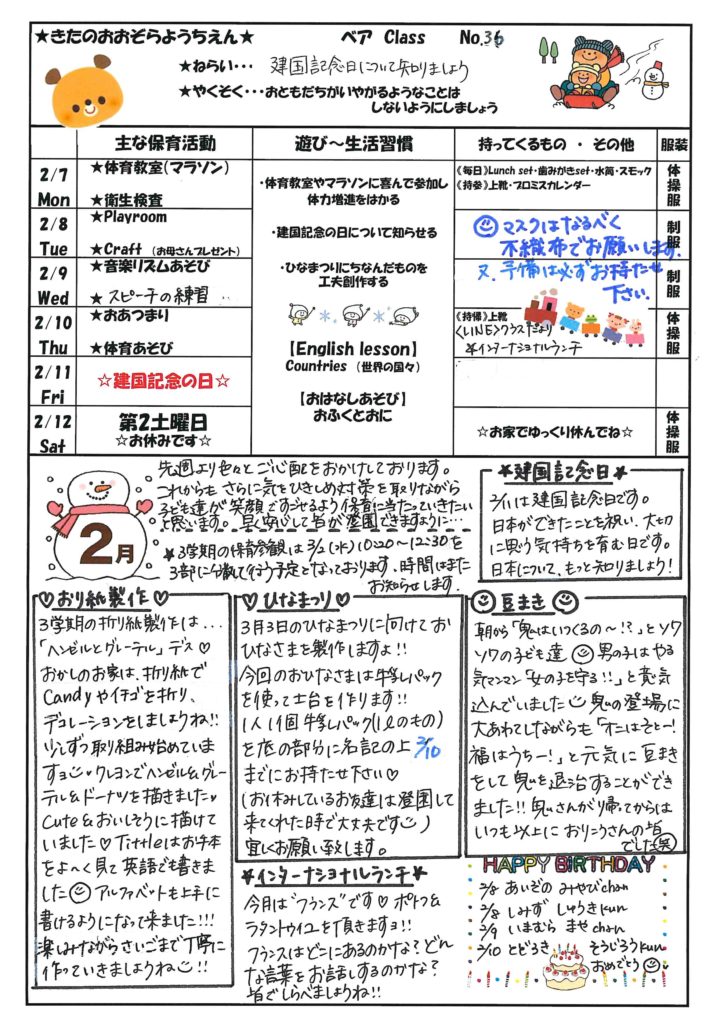 ★きたのおおぞらようちえん★ ベア Class No.36
★ねらい･･･ 建国記念日について知りましょう
★やくそく･･･おともだちがいやがるようなことは
しないようにしましょう
主な保育活動 遊び～生活習慣 持ってくるもの ・ その他 服装
2/7
Mon
★体育教室(マラソン)
★衛生検査
2/8
Tue
★Playroom
★Craft （お母さんプレゼント）
2/9
Wed
★音楽リズムあそび
★スピーチの練習
2/10
Thu
★おあつまり
★体育あそび
2/11
Fri
☆建国記念の日☆
2/12
Sat
第2土曜日
☆お休みです☆
・体育教室やマラソンに喜んで参加し
体力増進をはかる
・建国記念の日について知らせる
・ひなまつりにちなんだものを
工夫創作する
【English lesson】
Countries （世界の国々）
【おはなしあそび】
おふくとおに
《毎日》Lunch set・歯みがきset・水筒・スモック
《持参》上靴・プロミスカレンダー
マスクはなるべく
不織布でお願いします.
又、予備は必ずお持たせ
下さい.
《持帰》上靴
〈LINE〉クラスだより
☆インターナショナルランチ
☆お家でゆっくり休んでね☆
体操服
制服
制服
体操服
体操服
2月
先週より色々とご心配をおかけしております。
これからも さらに気をひきしめ対策を取りながら
子ども達が笑顔ですごせるよう保育に当たっていきたい
と思います。早く安心して皆が登園できますように･･･
★3学期の保育参観は3/2(水)10:20～12:30を
3部に分散して行う予定となっております、時間はまた
お知らせします.
★建国記念日★
2/11は建国記念日です。
日本ができたことを祝い、大切
に思う気持ちを育む日です。
日本について、もっと知りましょう！
♡おり紙製作♡
3学期の折り紙製作は･･･
「ヘンゼルとグレーテル」デス♡
おかしのお家は、折り紙で
Candyやイチゴを折り、
デコレーションをしましょうね!!
少しずつ取り組み始めていま
すョ クレヨンでヘンゼル&グレー
テル&ドーナツを描きました♡
Cute&おいしそうに描けて
いました♡Tittleはお手本
をよ〜く見て英語でも書きま
した アルファベットも上手に
書けるようになって来ました!!!
楽しみながらさいごまで丁寧に
作っていきましょうね!!
♡ひなまつり♡
3月3日のひなまつりに向けてお
ひなさまを製作しますよ!!
今回のおひなさまは牛乳パック
を使って土台を作ります!!
1人1個牛乳パック(1ℓのもの)
を底の部分に名記の上 2/10
までにお持たせ下さい♡
(お休みしているお友達は登園して
来てくれた時で大丈夫です)
宜しくお願い致します。
豆まき
朝から「鬼はいつくるの〜!?」とソワ
ソワの子ども達 男の子はやる
気マンマン「女の子を守る!!」と意気
込んでいました 鬼の登場に
大あわてしながらも「オニはそとー!
福はうちー!」と元気に豆まき
をして鬼を退治することができ
ました!! 鬼さんが帰ってからは
いつも以上におりこうさんの皆
でした 笑
★インターナショナルランチ★
今月は"フランス"です♡ポトフ&
ラタントゥイユを頂きますョ!!
フランスはどこにあるのかな？どん
な言葉をお話しするのかな？
皆でしらべましょうね!!
HAPPY BIRTHDAY
2/8 あいざの みやびchan
2/8 しみず しゅうきkun
2/9 いまむら まやchan
2/10 とどろき そうじろうkun
おめでとう